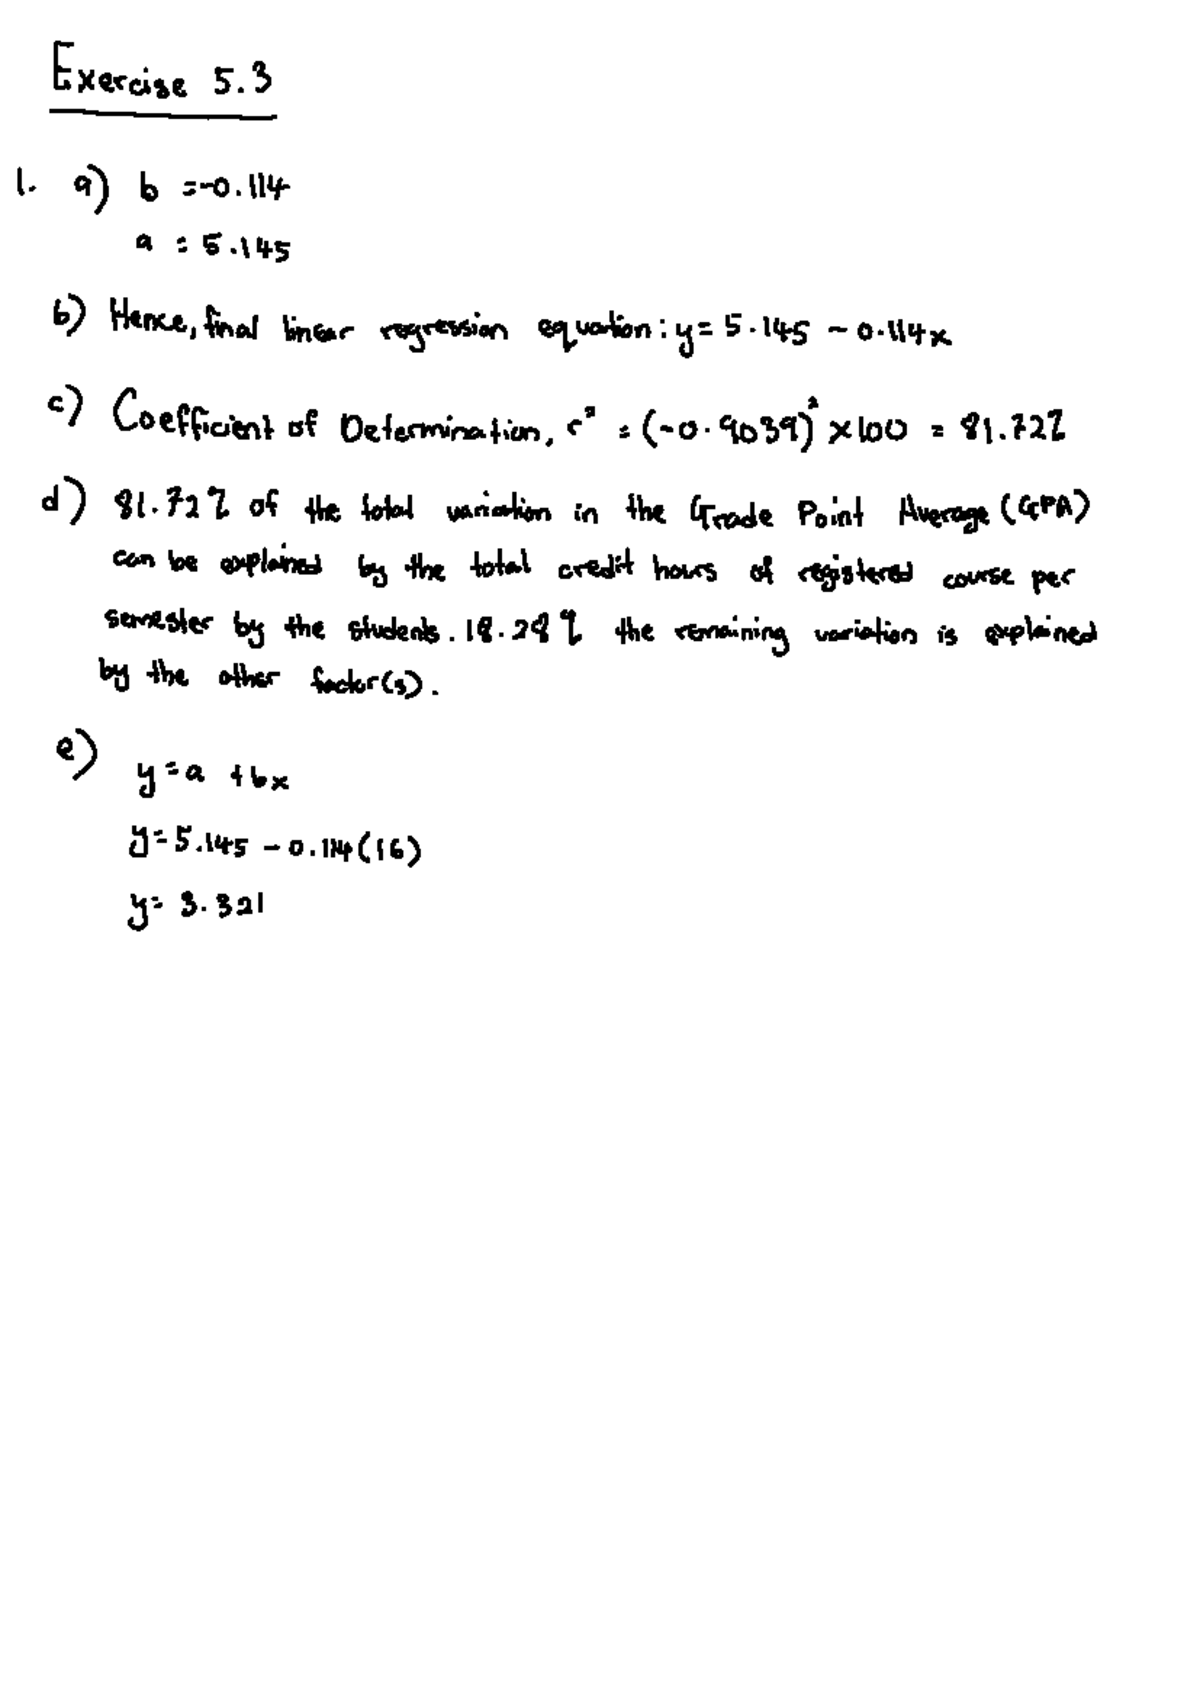 Exercise 5.3
1. a) b = -0.114
a = 5.145
b) Hence, final linear regression equation: y = 5.145 - 0.114x
c) Coefficient of Determination, r² = (-0.9039)² × 100 = 81.72%
d) 81.72% of the total variation in the Grade Point Average (GPA)
can be explained by the total credit hours of registered course per
semester by the students. 18.28% the remaining variation is explained
by the other factor(s).
e)
y = a + bx
y = 5.145 - 0.114(16)
y = 3.321